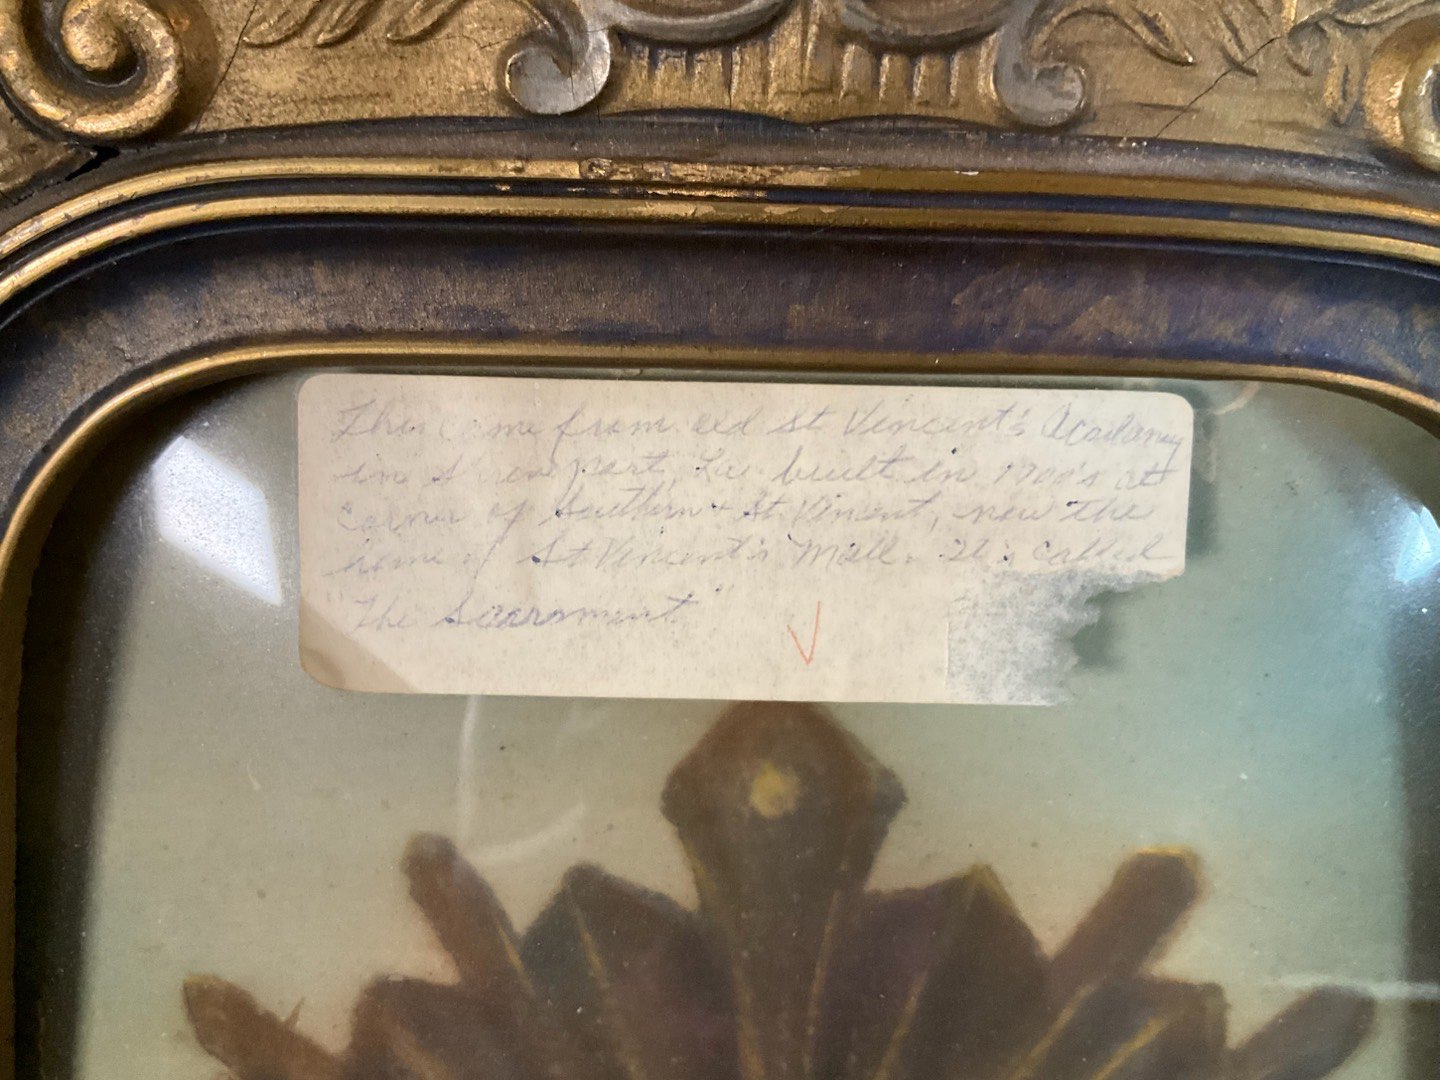 This came from old St Vincent's Acadamy
in Shreveport, La. built in 1900's at
corner of Southern + St. Vincent, now the
home of St Vincent's Mall. It is called
"The Sacarment"